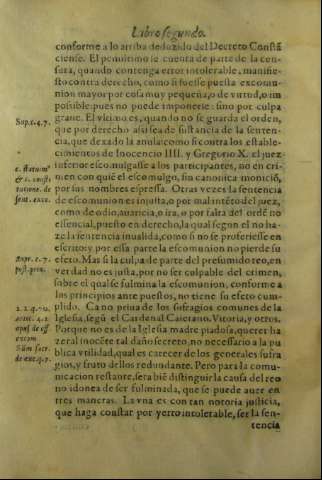 Libro segundo.
conforme a lo arriba deduzido del Decreto Constã
ciense. El penultimo se cuenta de parte de la cen-
sura, quando contenga error intolerable, manifie-
sto contra derecho, como si fuesse puesta excomu-
nion mayor por cosa muy pequeña, o de virtud, o im
possible: pues no puede imponerse: sino por culpa
graue. El vltimo es, quando no se guarda el orden,
Sup. c. 4. 7.
que por derecho assi sea de sustancia de la senten-
cia, que dexado la anula: como si contra los estable-
cimientos de Inocencio IIII. y Gregorio X. el juez
inferior escomulgasse a los participantes, no en cri-
men con quié el escomulgo, sin canonica monició,
por sus nombres espressa. Otras vezes la sentencia
de escomunion es injusta, o por mal intéto del juez,
como de odio, auaricia, o ira, o por falta del ordé no
essencial, puesto en derecho, la qual segun el no ha-
ze la sentencia inualida, como si no se profiriesse en
escrito: y por essa parte la escomunion no pierde su
efeto. Mas si la culpa de parte del presumido reo, en
verdad no es justa, por no ser culpable del crimen,
sobre el qual se fulmina la escomunion, conforme a
los principios ante puestos, no tiene su efeto cum-
plido. Ca no priua de los sufragios comunes de la
Iglesia, segú el Cardenal Caietano, Vitoria, y otros.
Porque no es de la Iglesia madre piadosa, querer ha
zer al inocéte tal daño secreto, no necessario a la pu
blica vtilidad, qual es carecer de los generales sufra
gios, y fruto dellos redundante. Pero para la comu-
nicacion restante, sera bié distinguir la causa del reo
no idonea de ser fulminada, que se puede auer en
tres maneras. La vna es con tan notoria justicia,
que haga constar por yerro intolerable, ser la sen-
tencia